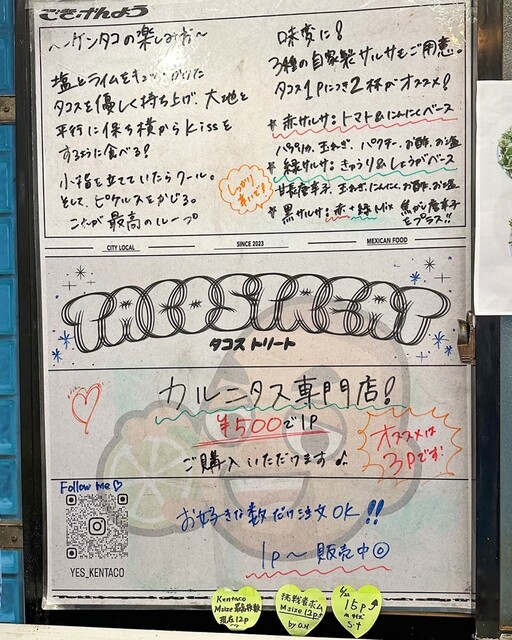 ごきげんよう
〜ケンタコの楽しみ方〜
塩とライムをキュッとかけた
タコスを優しく持ち上げ、大地と
平行に保ち横からKissを
するように食べる!
小指を立てていたらクール。
そして、ピクルスをかじる。
これが最高のループ
味変に!
3種の自家製サルサもご用意。
タコス1Pにつき2杯がオススメ!
赤サルサ:トマト&にんにくベース
パプリカ、玉ねぎ、パクチー、お酢、お塩
緑サルサ:きゅうり&しょうがベース
甘長唐辛子、玉ねぎ、にんにく、お酢、お塩
黒サルサ:赤+緑Mix 焦がし唐辛子
をプラス!!
CITY LOCAL
SINCE 2023
MEXICAN FOOD
TACOSTREAT
タコストリート
カルニタス専門店!
¥500で1P
ご購入いただけます♪
オススメは
3Pです!
Follow Me♡
YES_KENTACO
お好きな数だけ注文OK!!
1P〜販売中◎
Kentaco
Msize最高枚数
現在12p
挑戦者求ム
Msize 12p↑
by O.H
15p↗
S.t